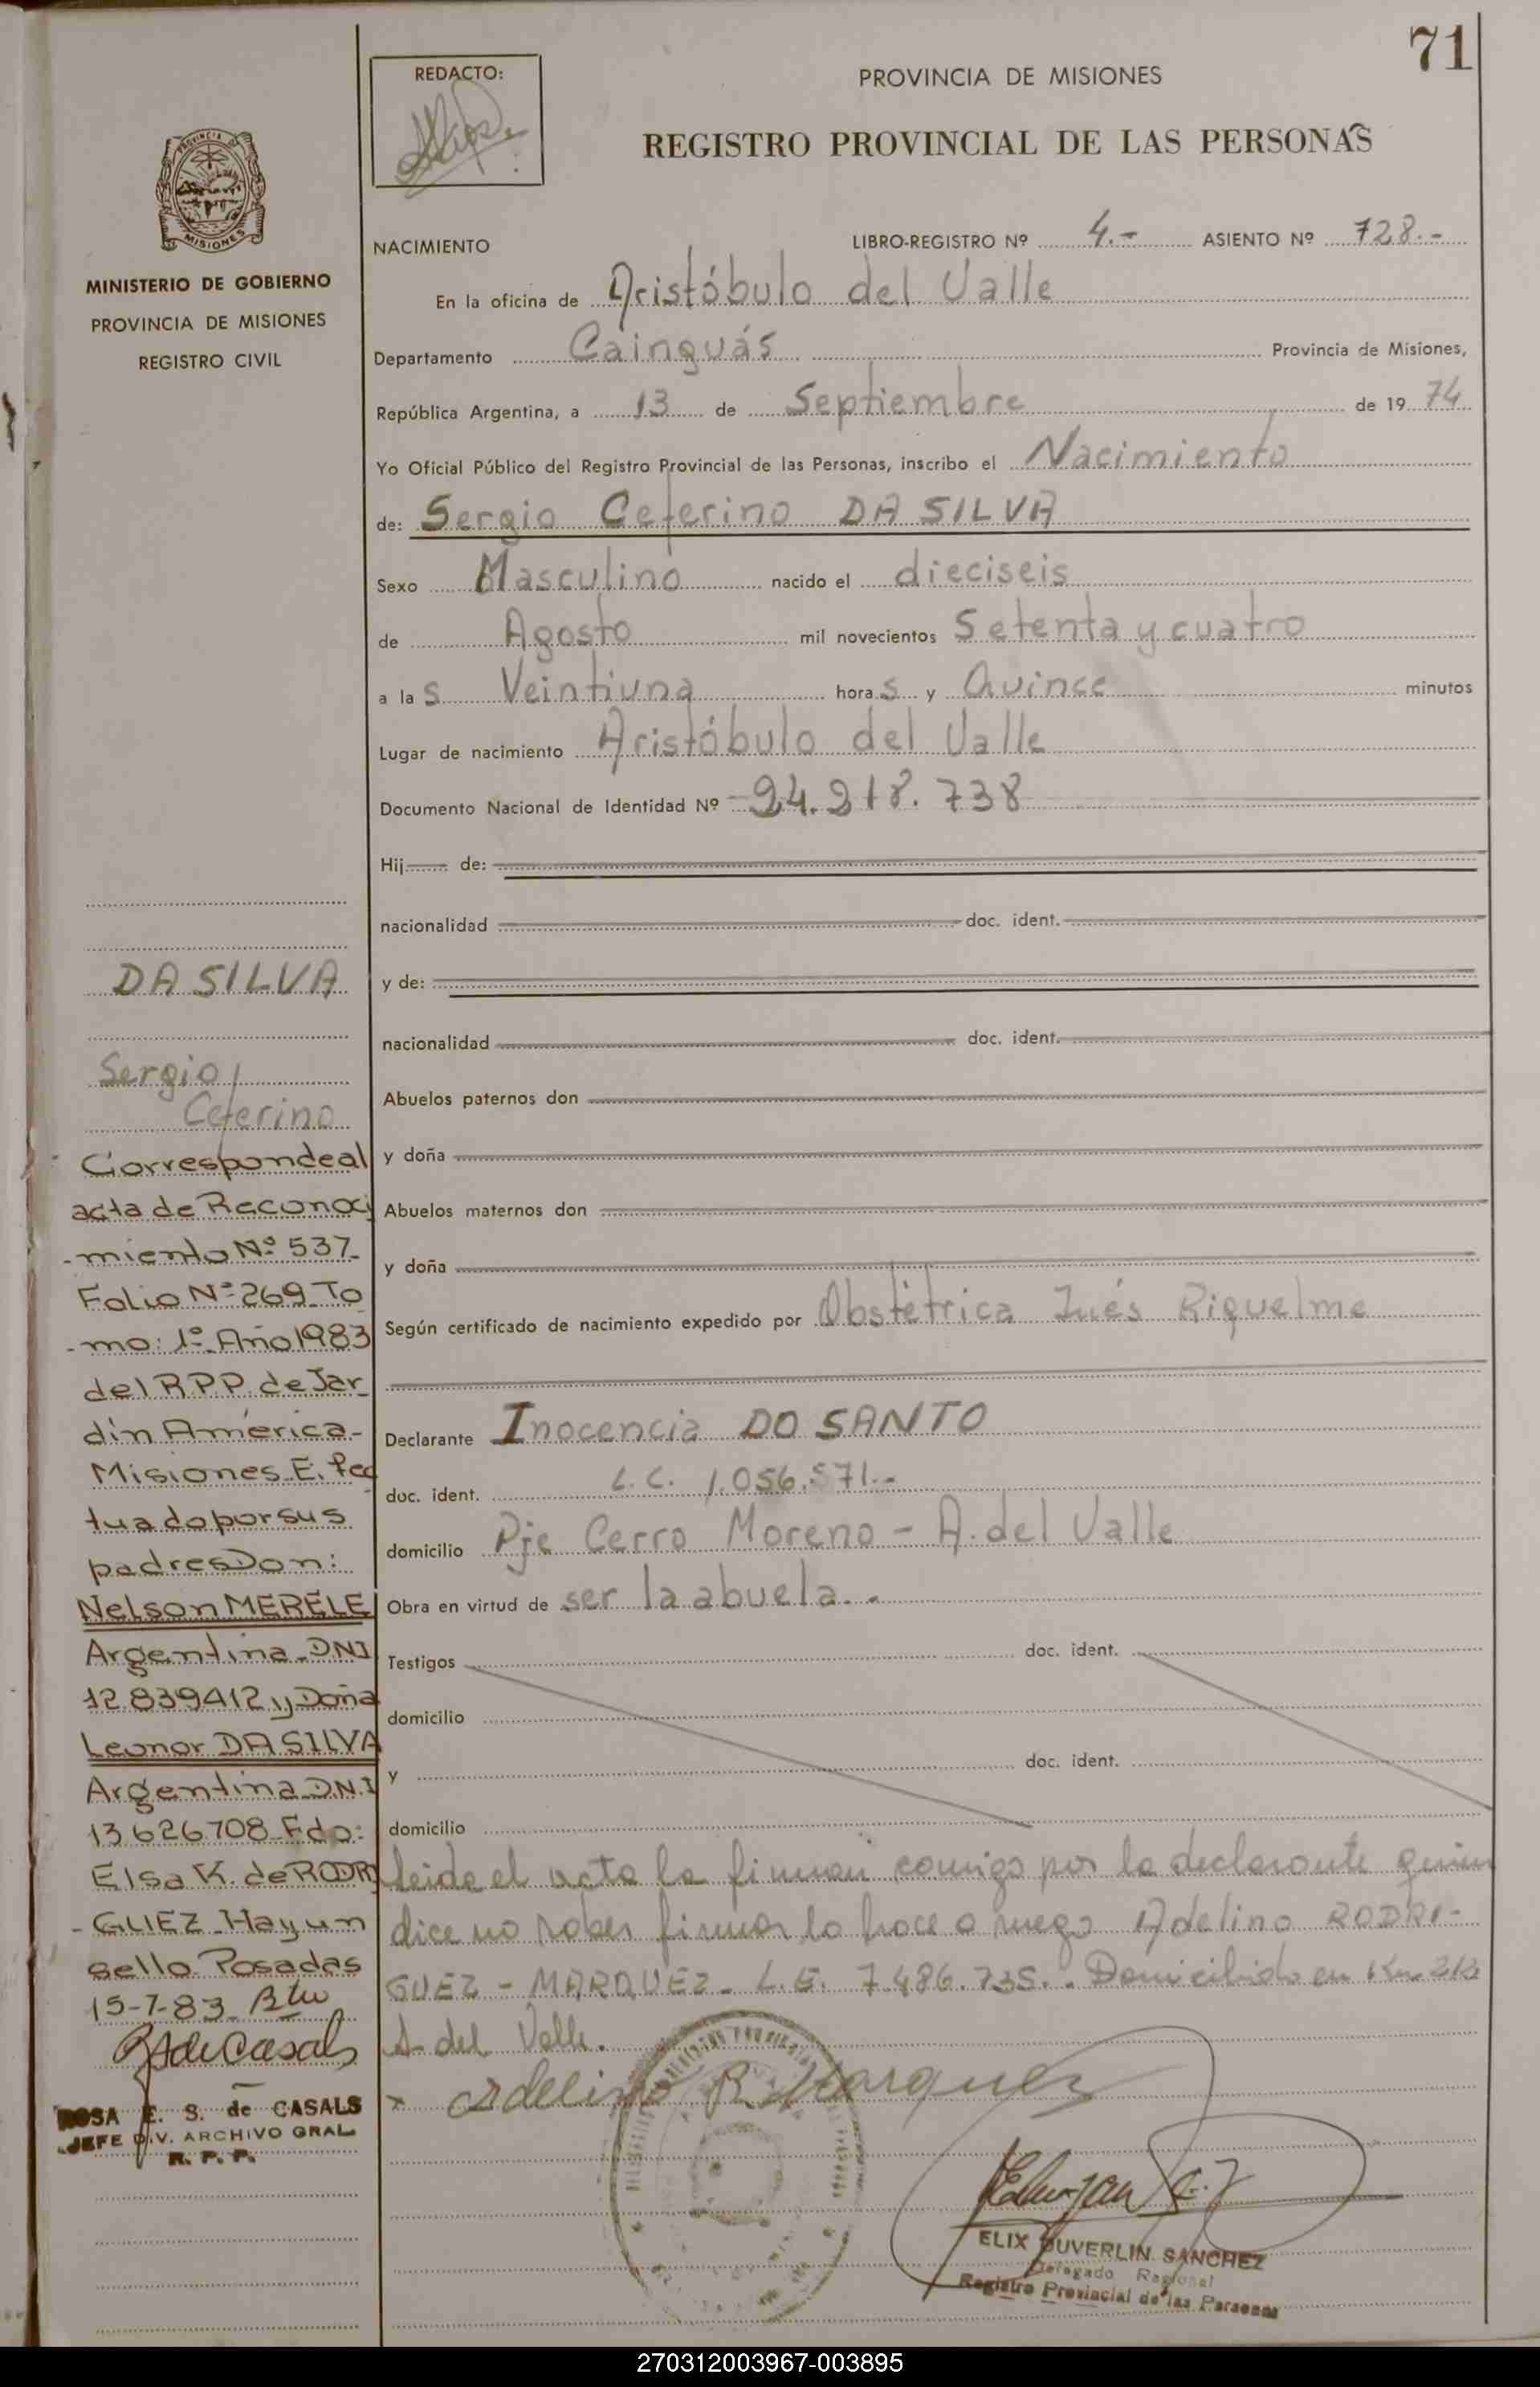 71
REDACTO:
PROVINCIA DE MISIONES
REGISTRO PROVINCIAL DE LAS PERSONAS
MISIONES
MINISTERIO DE GOBIERNO
PROVINCIA DE MISIONES
REGISTRO CIVIL
NACIMIENTO LIBRO-REGISTRO Nº 4.- ASIENTO Nº 728.-
En la oficina de Aristóbulo del Valle
Departamento Cainguás Provincia de Misiones,
República Argentina, a 13 de Septiembre de 19 74
Yo Oficial Público del Registro Provincial de las Personas, inscribo el Nacimiento
de: Sergio Ceferino DA SILVA
Sexo Masculino nacido el dieciseis
de Agosto mil novecientos Setenta y cuatro
a la s Veintiuna hora s y Quince minutos
Lugar de nacimiento Aristóbulo del Valle
Documento Nacional de Identidad Nº 24.218.738
Hij de:
nacionalidad doc. ident.
y de:
nacionalidad doc. ident.
Abuelos paternos don
y doña
Abuelos maternos don
y doña
Según certificado de nacimiento expedido por Obstétrica Inés Riquelme
Declarante Inocencia DO SANTO
doc. ident. L.C. 1.056.571.-
domicilio Pje Cerro Moreno - A. del Valle
Obra en virtud de ser la abuela.-
Testigos doc. ident.
domicilio
y doc. ident.
domicilio
leida el acta la firman comigo por la declarante quien
dice no saber firmar lo hace a ruego Adelino RODRI-
GUEZ - MARQUEZ - L.E. 7.486.735.- Domicilido en Km 212
A. del Valle.
x Adelino R. Marquez
ELIX DUVERLIN SANCHEZ
Delegado Regional
Registro Provincial de las Personas
DA SILVA
Sergio
Ceferino
Corresponde al
acta de Reconoci
-miento Nº 537
Folio Nº 269 To
-mo: 1º Año 1983
del RPP de Jar
dín América-
Misiones E.fec
tuado por sus
padres Don:
Nelson MERELE
Argentina DNI
12.839412 y Doña
Leonor DA SILVA
Argentina D.N.I
13626708 Fdo:
Elsa K. de RODRI
-GUEZ Hay un
sello Posadas
15-7-83
R de Casals
ROSA E. S. de CASALS
JEFE DIV. ARCHIVO GRAL
R. P. P.
270312003967-003895